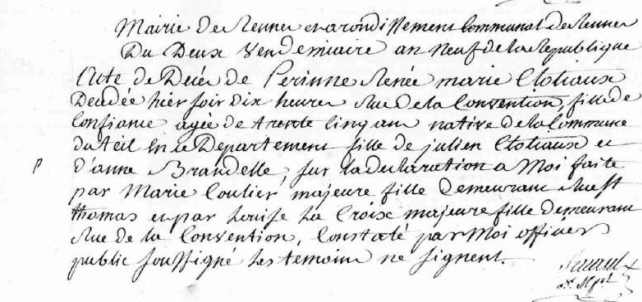 Mairie de Rennes et arondissement Communal de Rennes
Du Deux Vendemiaire an Neuf de la Republique
Acte de Décés de Perinne Renée marie Clotiaux
Decedée hier soir dix heures Rue de la Convention, fille de
confiance agée de trente cinq ans native de la Commune
du teil En ce Departement fille de julien Clotiaux et
d'anne Brandelle, sur la declaration a Moi faite
par Marie Coulier, majeure fille Demeurant Rue St
thomas et par Louise La Croix majeure fille demeurant
Rue de la Convention, Constaté par Moi officier
public soussigné Les temoins ne signent.